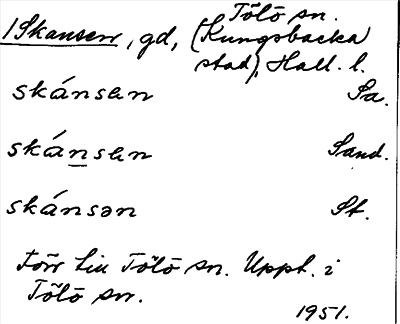 Tölö sn.
1 Skansen, gd, (Kungsbacka
stad), Hall. l.
skánsen Sa.
skánsen Sand.
skánsən St.
förr till Tölö sn. Uppt. i
Tölö sn.
1951.